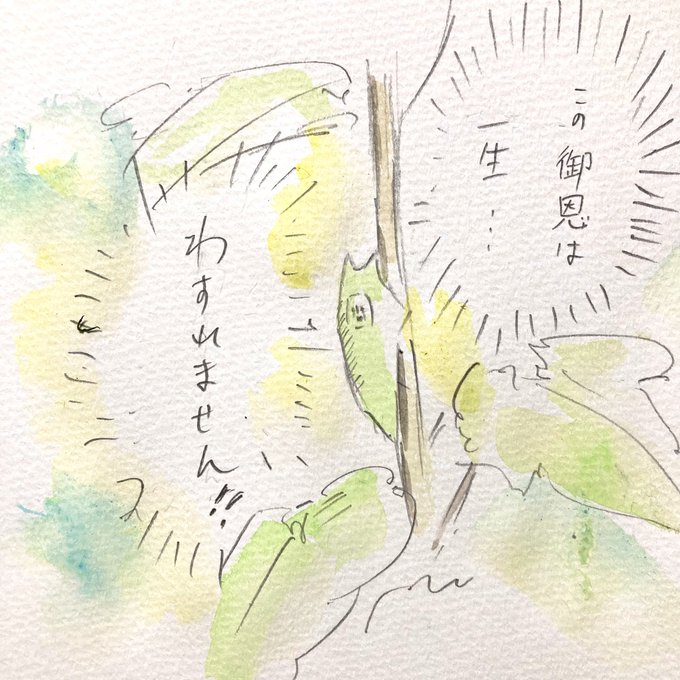 この御恩は
一生…
わすれません!!